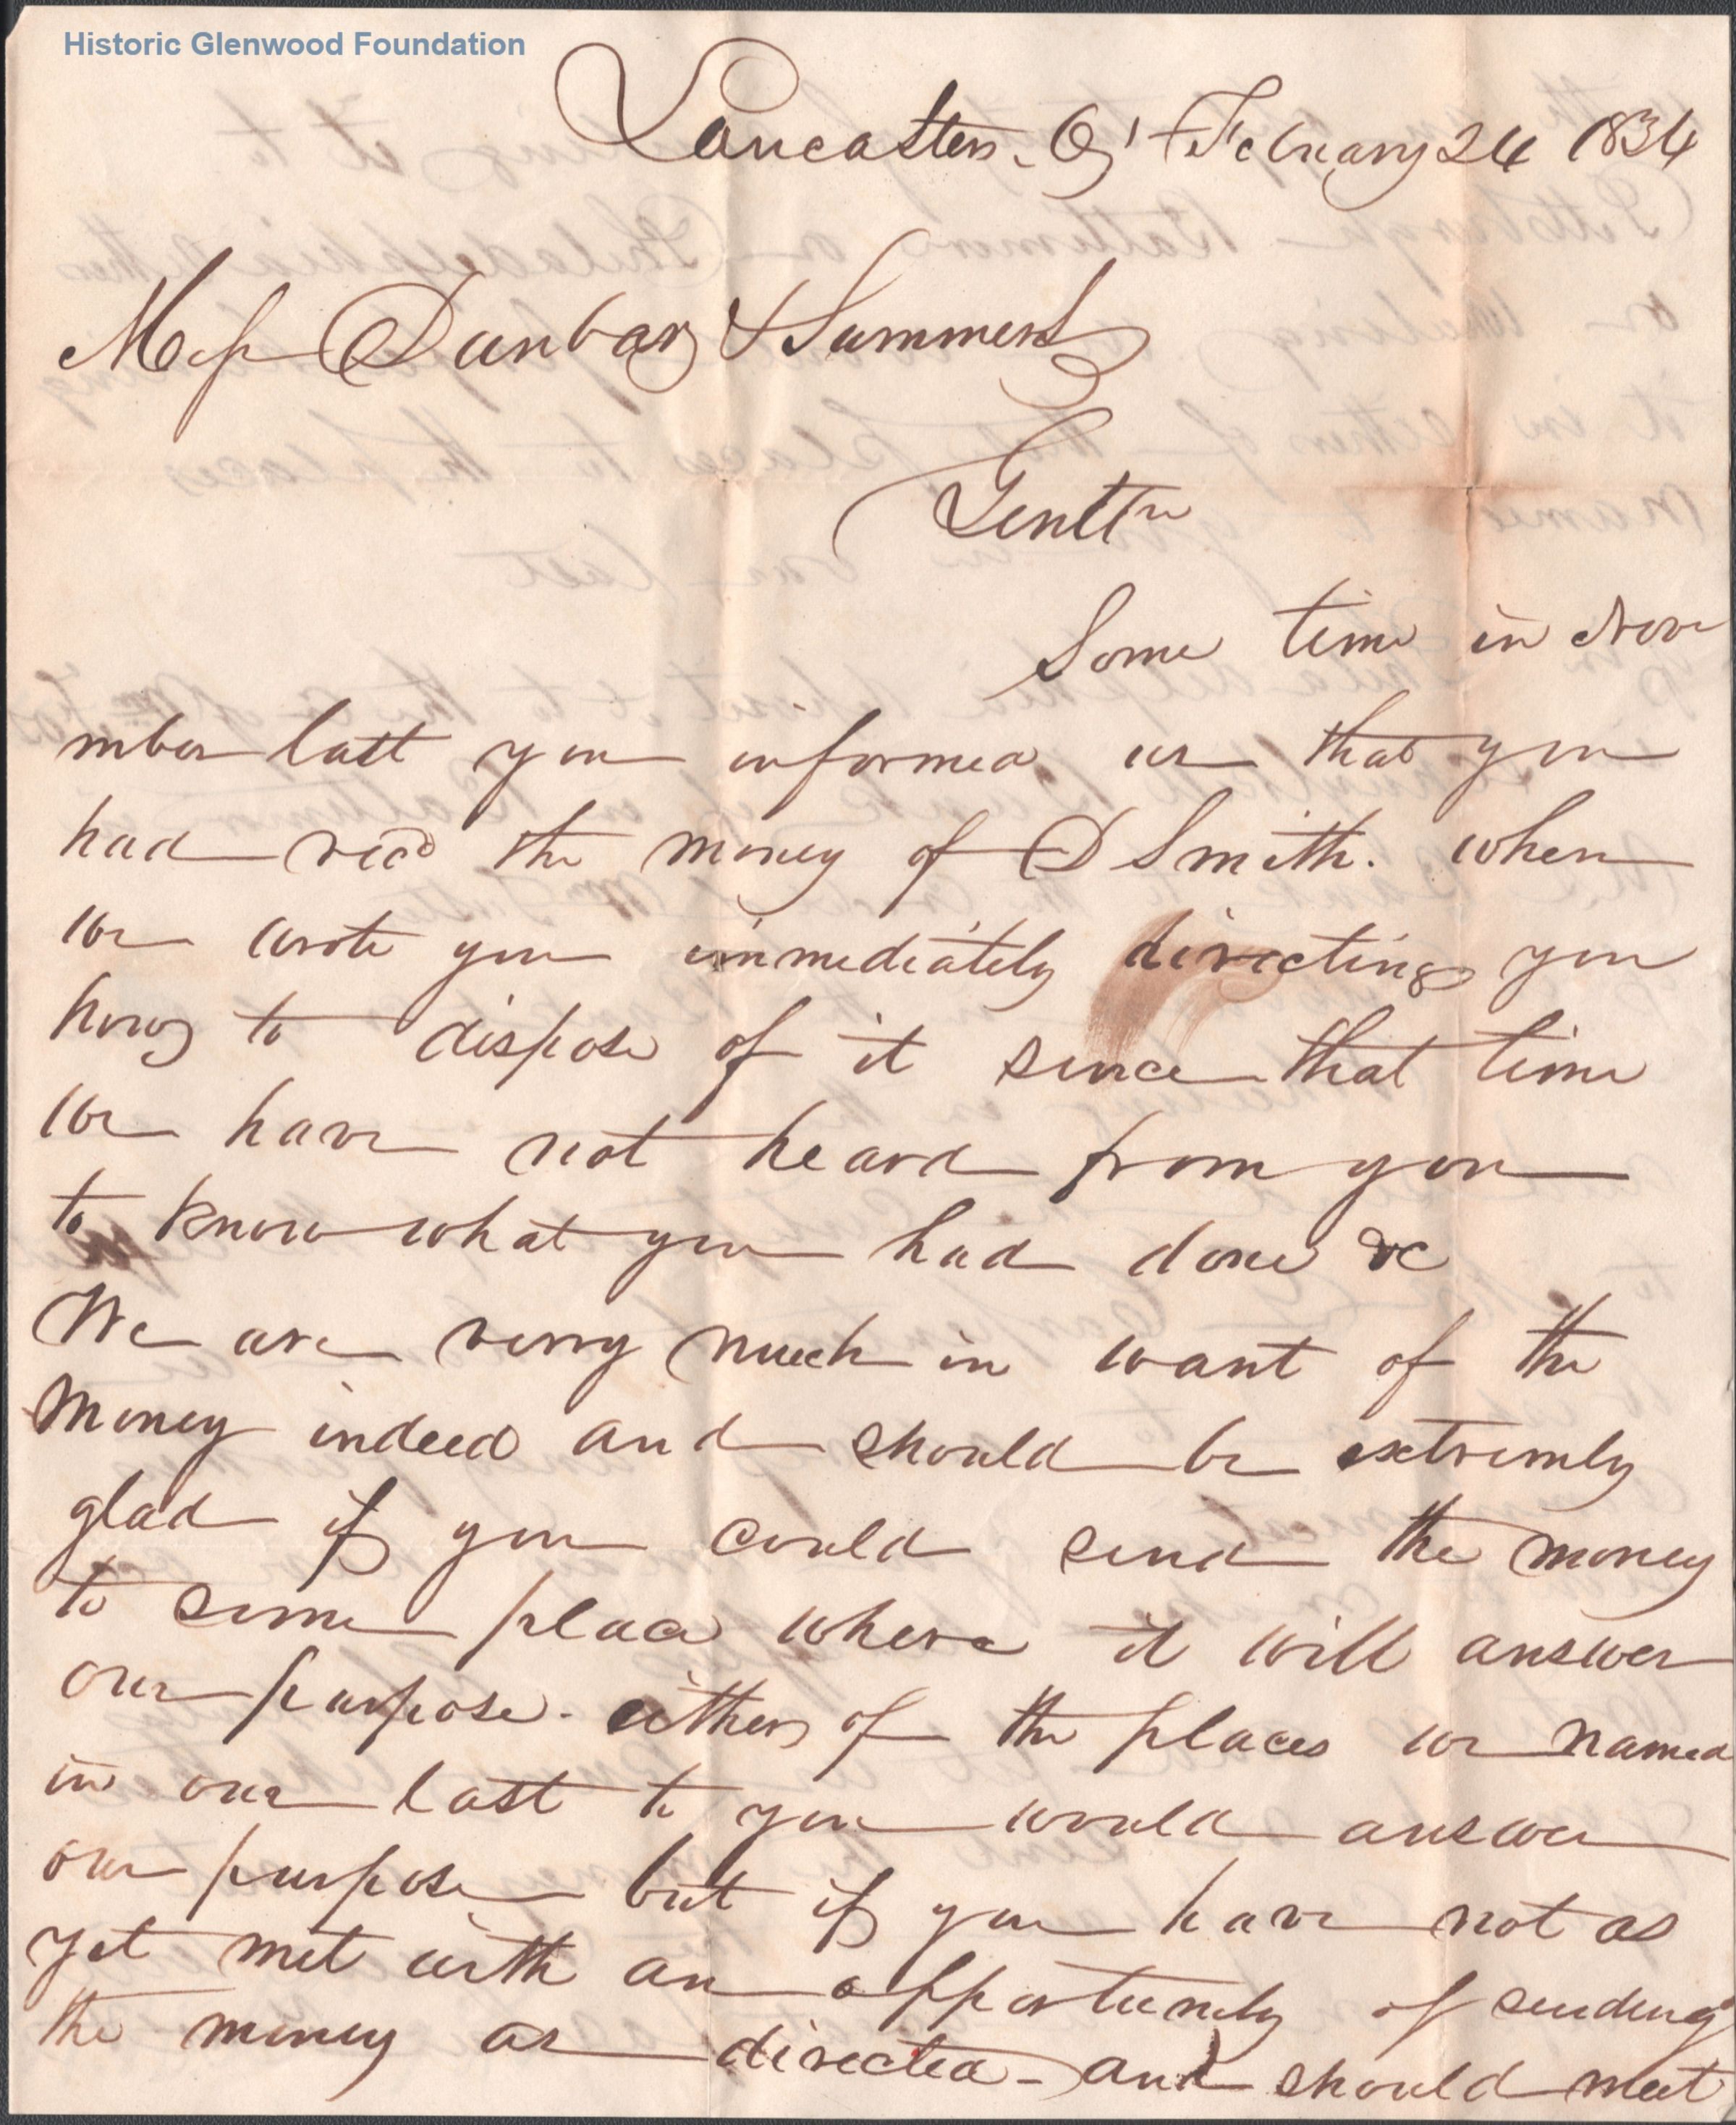 Historic Glenwood Foundation
Lancaster. O, February 24 1834
Mess Dunbar & Summers
Gentln
Some time in Nove
mber last you informed us that you
had recd the money of D Smith. when
we wrote you immediately directing you
how to dispose of it since that time
we have not heard from you
to know what you had done &c
We are verry much in want of the
money indeed and should be extremly
glad if you could send the money
to some place where it will answer
our purpose. either of the places we named
in our last to you would answer
our purpose but if you have not as
yet met with an opportunity of sending
the money as directed - and should meet